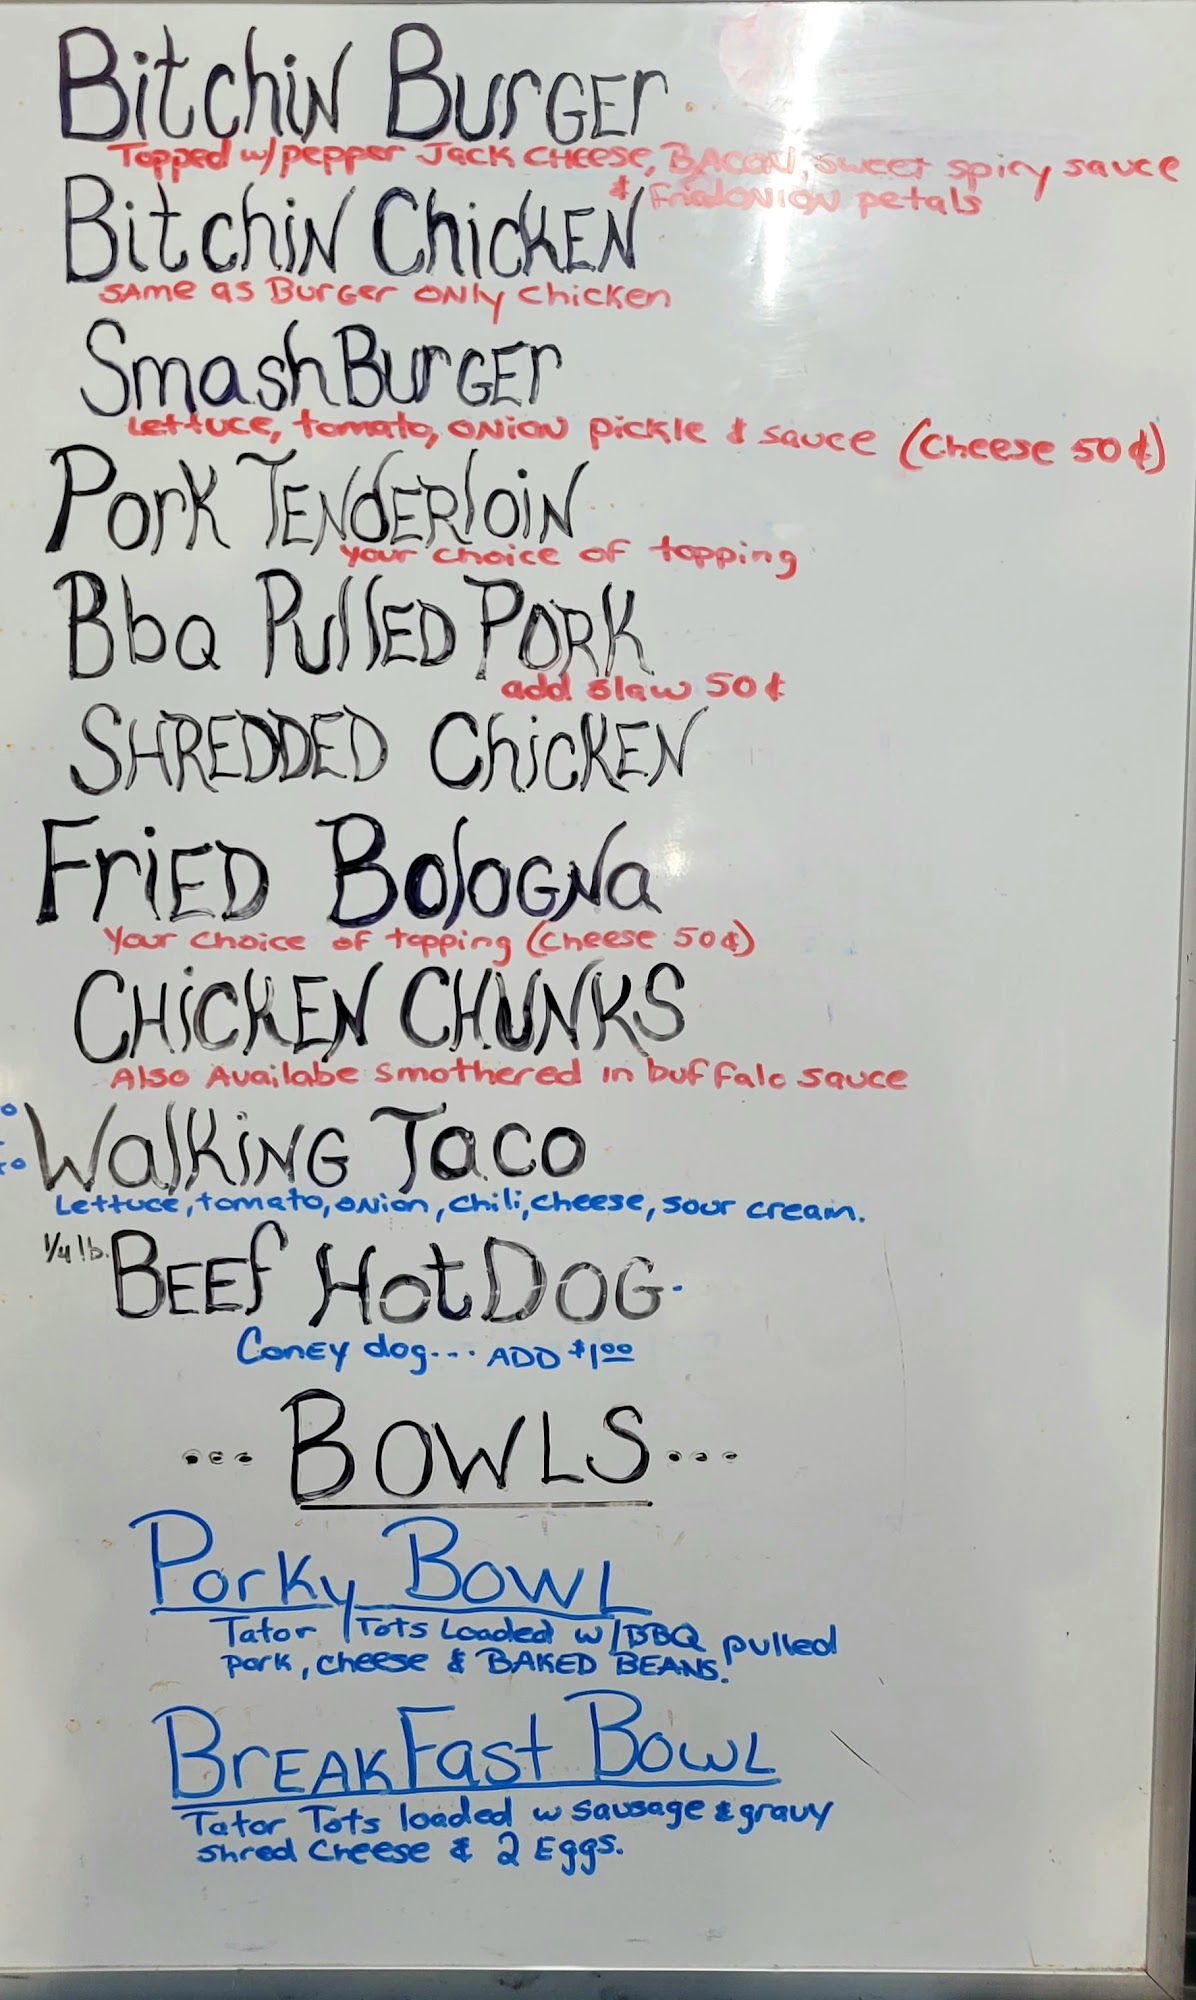 Bitchin Burger
Topped w/pepper Jack Cheese, BACON, sweet spicy sauce
& Fried ONION petals
Bitchin Chicken
SAme as Burger ONly Chicken
Smash Burger
Lettuce, tomato, ONION pickle & sauce (Cheese 50¢)
Pork Tenderloin
your choice of topping
Bbq Pulled Pork
add slaw 50¢
SHREDDED Chicken
Fried Bologna
Your choice of topping (Cheese 50¢)
CHICKEN CHUNKS
Also Availabe smothered in buffalo sauce
Walking Taco
Lettuce, tomato, onion, chili, cheese, sour cream.
1/4 lb. Beef Hot Dog
Coney dog... ADD $1.00
... BOWLS ...
Porky Bowl
Tator Tots Loaded w/BBQ pulled
pork, cheese & BAKED BEANS.
BreakFast Bowl
Tator Tots loaded w sausage & gravy
shred Cheese & 2 Eggs.